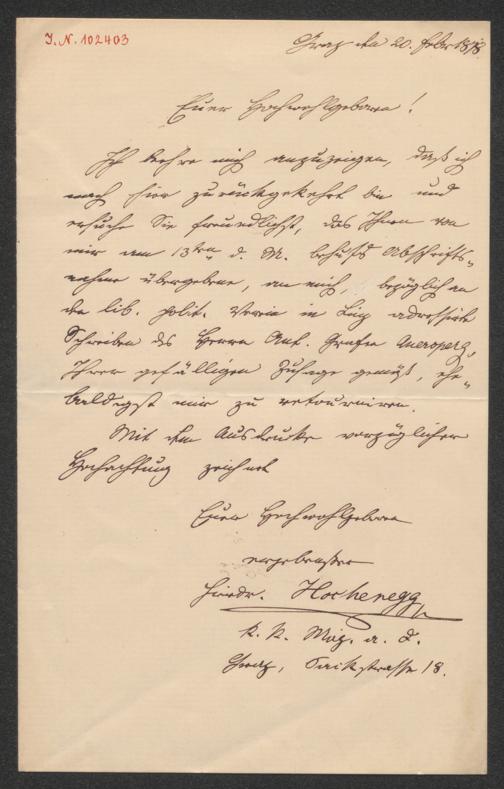 I.N. 102403
Graz den 20. Febr. 1878
Euer Hochwohlgeboren!
Ich beehre mich anzuzeigen, daß ich
nach hier zurückgekehrt bin und
ersuche Sie freundlichst, das Ihnen von
mir am 13ten d. M. behufs Abschrifts-
nahme übergebene, an mich, bezüglich an
den lib. polit. Verein in Linz adressirte
Schreiben des Herrn Ant. Grafen Auersperg,
Ihrer gefälligen Zusage gemäß, ehe-
baldigst mir zu retourniren.
Mit dem Ausdrucke vorzüglicher
Hochachtung zeichnet
Euer Hochwohlgeboren
ergebenster
Friedr. Hochenegg
k. k. Maj. a. D.
Graz, Sackstrasse 18.